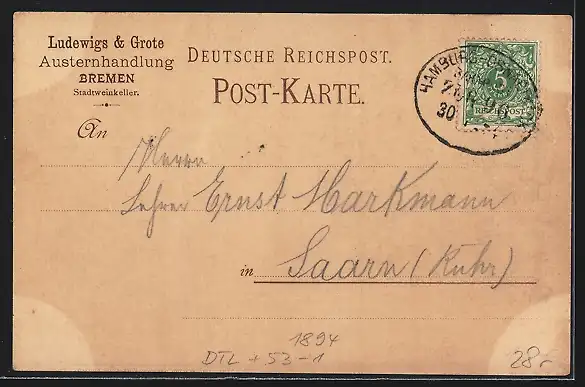 Ludewigs & Grote
Austernhandlung
BREMEN
Stadtweinkeller.
DEUTSCHE REICHSPOST.
POST-KARTE.
5
REICHSPOST
HAMBURG
30
An
Herrn
Lehrer Ernst Markmann
in Saarn (Ruhr)
1894
DTL + 53-1
28,-